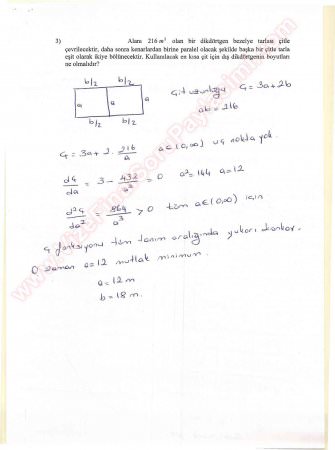 3) Alanı 216 m² olan bir dikdörtgen bezelye tarlası çitle
çevrilecektir, daha sonra kenarlardan birine paralel olacak şekilde başka bir çitle tarla
eşit olarak ikiye bölünecektir. Kullanılacak en kısa çit için dış dikdörtgenin boyutları
ne olmalıdır?
b/2 b/2
a a a
b/2 b/2
Çit uzunluğu Ç = 3a+2b
ab = 216
Ç = 3a + 2 · 216/a a∈(0,∞) uç nokta yok.
dÇ/da = 3 - 432/a² = 0 a² = 144 a = 12
d²Ç/da² = 864/a³ > 0 tüm a∈(0,∞) için
Ç fonksiyonu tüm tanım aralığında yukarı konkav.
O zaman a = 12 mutlak minimum.
a = 12 m
b = 18 m.